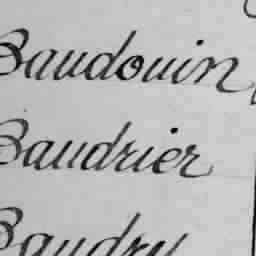 Baudouin
Baudrier
Baudry